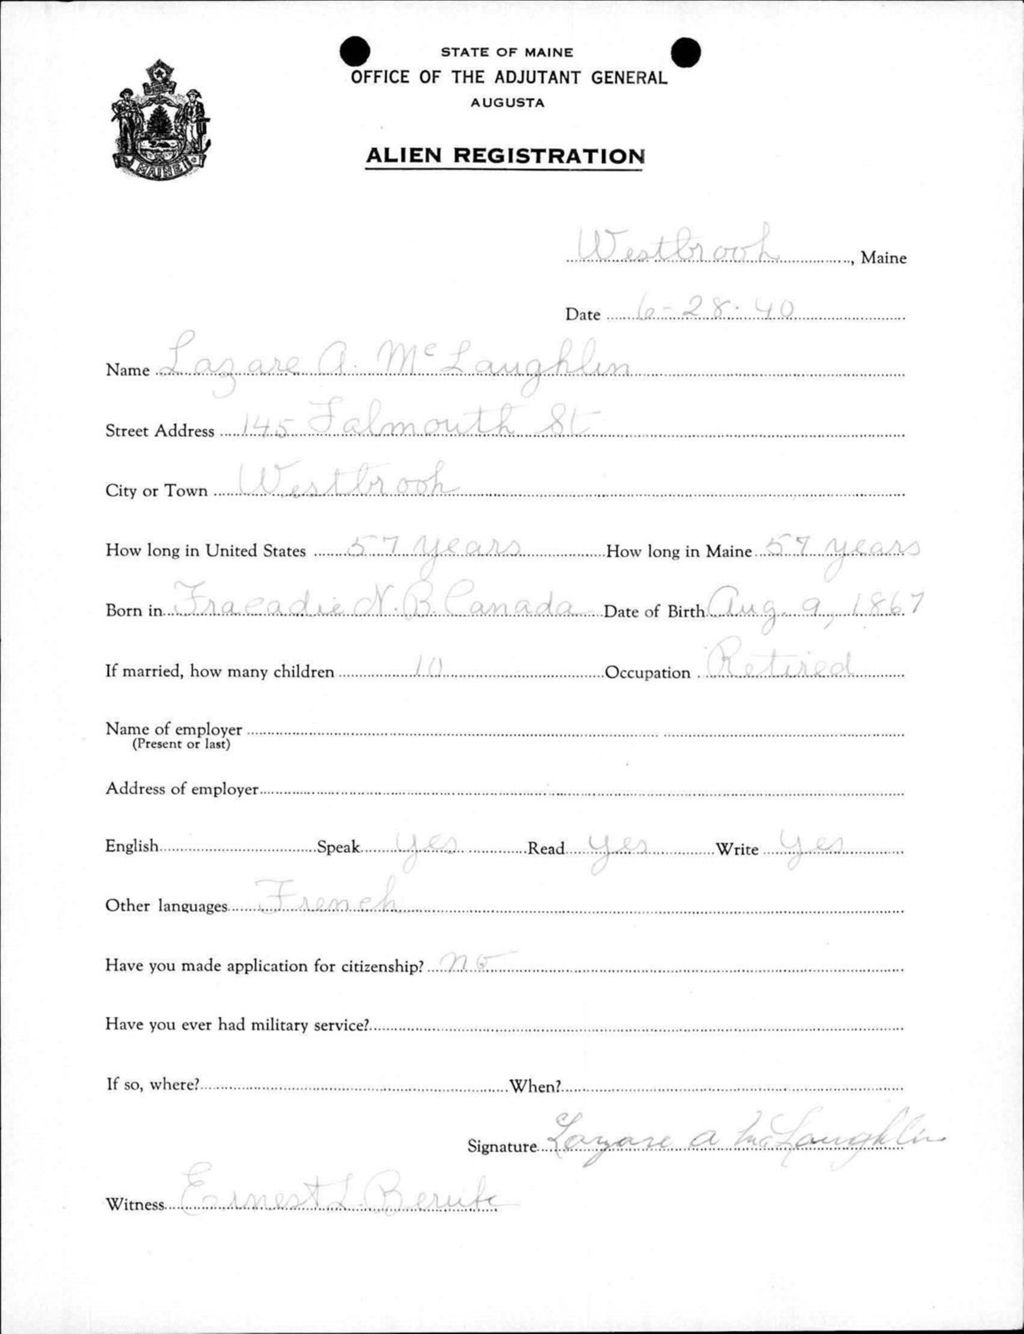 STATE OF MAINE
OFFICE OF THE ADJUTANT GENERAL
AUGUSTA
ALIEN REGISTRATION
MAINE
Westbrook, Maine
Date 6-28-40
Name Lazare A. McLaughlin
Street Address 145 Falmouth St
City or Town Westbrook
How long in United States 57 years How long in Maine 57 years
Born in Tracadie N.B. Canada Date of Birth Aug. 9, 1867
If married, how many children 10 Occupation Retired
Name of employer
(Present or last)
Address of employer
English Speak yes Read yes Write yes
Other languages French
Have you made application for citizenship? no
Have you ever had military service?
If so, where? When?
Signature Lazare A McLaughlin
Witness Ernest L. Berube